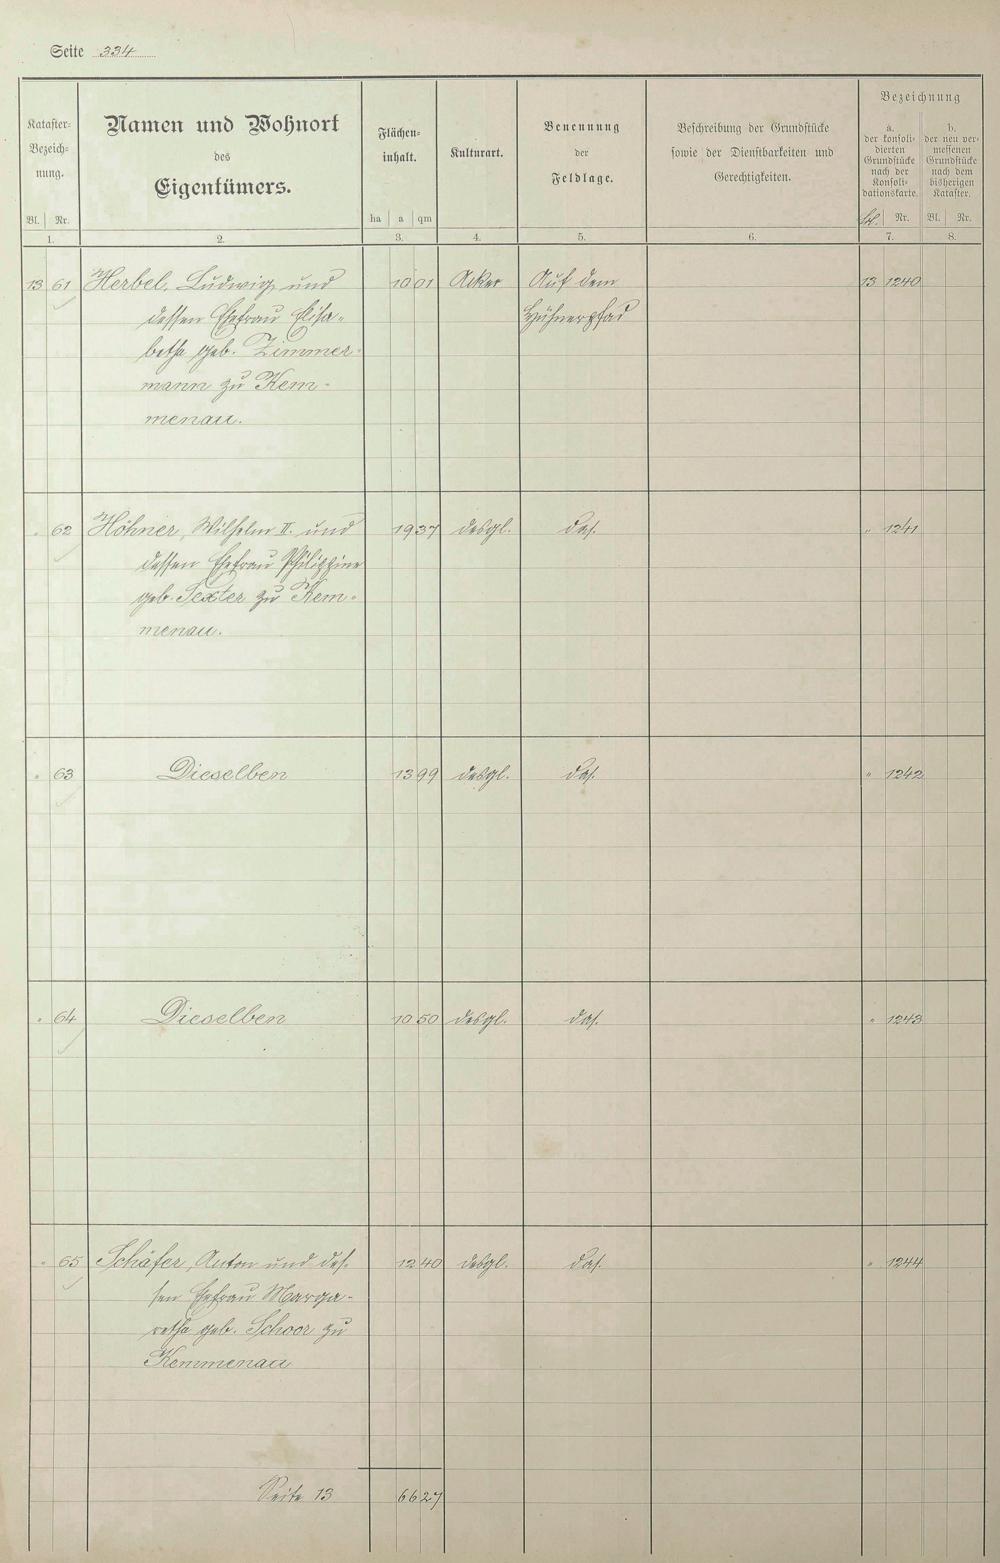 Seite 334
Kataster-Bezeich-nung.
Namen und Wohnort
des
Eigentümers.
Flächen-inhalt.
Kulturart.
Benennung
der
Feldlage.
Beschreibung der Grundstücke
sowie der Dienstbarkeiten und
Gerechtigkeiten.
Bezeichnung
a.
der konsoli-
dierten
Grundstücke
nach der
Konsoli-
dationskarte.
b.
der neu ver-
messenen
Grundstücke
nach dem
bisherigen
Kataster.
Bl. Nr. ha a qm Bl. Nr. Bl. Nr.
1. 2. 3. 4. 5. 6. 7. 8.
13 61 Herbel, Ludwig, und 10 01 Acker Auf dem 13 1240
dessen Ehefrau Elisa- Hühnerpfad
betha geb. Zimmer-
mann zu Kem-
menau.
" 62 Höhner, Wilhelm II. und 19 37 desgl. das. " 1241
dessen Ehefrau Philippine
geb. Sexter zu Kem-
menau.
" 63 Dieselben 13 99 desgl. das. " 1242
" 64 Dieselben 10 50 desgl. das. " 1243
" 65 Schäfer, Anton und des- 12 40 desgl. das. " 1244
sen Ehefrau Marga-
retha geb. Schoor zu
Kemmenau
Seite 13 66 27